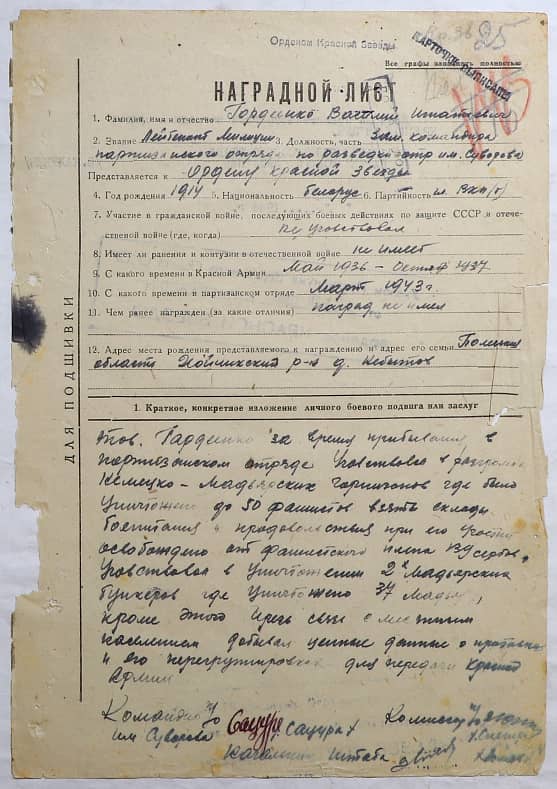 Орденом Красной Звезды
25
КАРТОЧКА ВЫПИСАНА
Все графы заполнять полностью
НАГРАДНОЙ ЛИСТ
1. Фамилия, имя и отчество Гордиенко
2. Звание Лейтенант Милиции 3. Должность, часть Зам. командира
партизанского отряда по разведке отр им. Суворова
Представляется к Ордену красной Звезды
4. Год рождения 1914 5. Национальность белорус 6. Партийность чл. Вкп(б)
7. Участие в гражданской войне, последующих боевых действиях по защите СССР и отече-
ственной войне (где, когда) не участвовал
8. Имеет ли ранения и контузии в отечественной войне не имеет
9. С какого времени в Красной Армии Май 1936 – 1937
10. С какого времени в партизанском отряде Март 1943 г.
11. Чем ранее награжден (за какие отличия) наград не имел
12. Адрес места рождения представляемого к награждению и адрес его семьи
области Хойникский р-н д.
ДЛЯ ПОДШИВКИ
1. Краткое, конкретное изложение личного боевого подвига или заслуг
Тов. за время прибывания в
партизанском отряде Участвовал в
Немецко – Мадьярских гарнизонов где было
Уничтожено до 50 фашистов взяты склады
боепитания и продовольствия при его
освобождено от фашистского плена
Участвовал в Уничтожении 2х Мадьярских
бункеров где Уничтожено 37
кроме этого через связь с местным
населением добывал ценные данные о
и его перегруппировках для передачи красной
Армии
Командир
им Суворова сацура Комиссар
начальник штаба